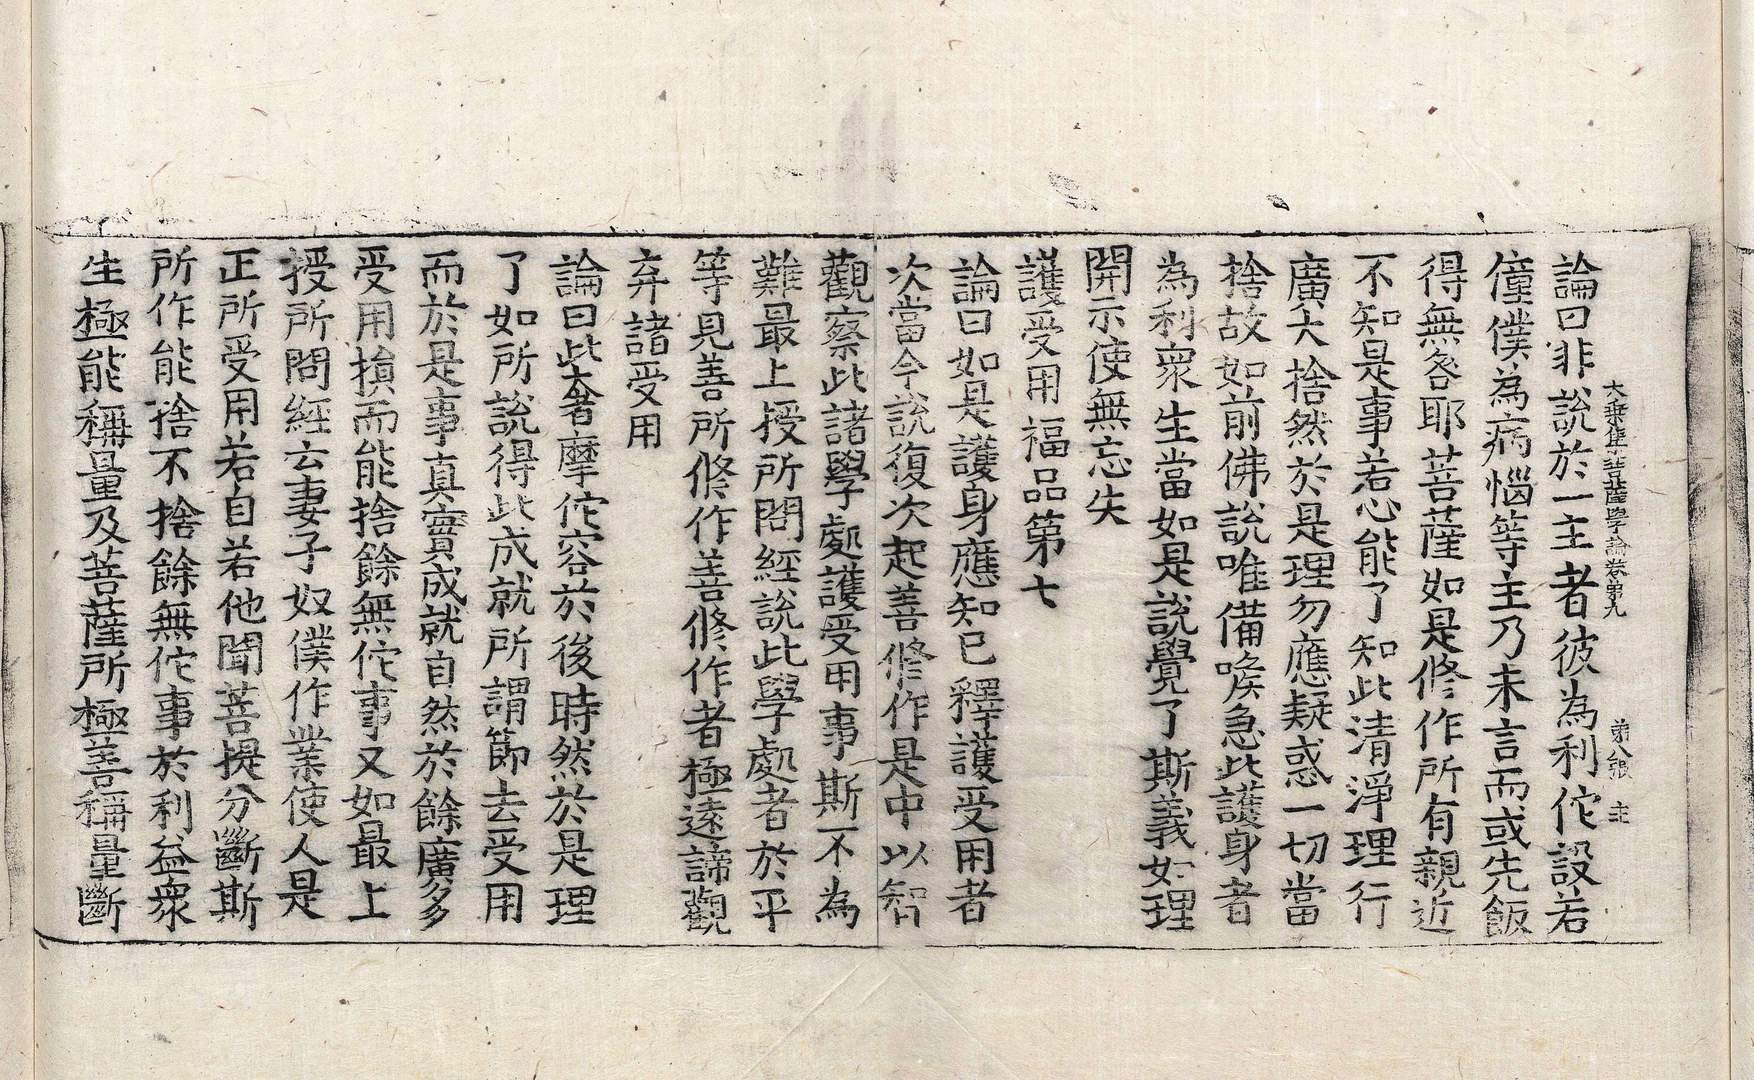 大乗集菩薩學論卷第九 第八張 主
論曰非說於一主者彼為利佗設若
僮僕為病惱等主乃未言而或先飯
得無咎耶菩薩如是修作所有親近
不知是事若心能了知此清淨理行
廣大捨然於是理勿應疑惑一切當
捨故如前佛說唯備喉急此護身者
為利衆生當如是說覺了斯義如理
開示使無忘失
護受用福品第七
論曰如是護身應知已釋護受用者
次當今說復次起善修作是中以智
觀察此諸學處護受用事斯不為
難最上授所問經說此學處者於平
等見善所修作善修作者極遠諦觀
弃諸受用
論曰此奢摩佗容於後時然於是理
了如所說得此成就所謂節去受用
而於是事真實成就自然於餘廣多
受用損而能捨餘無佗事又如最上
授所問經云妻子奴僕作業使人是
正所受用若自若他聞菩提分斷斯
所作能捨不捨餘無佗事於利益衆
生極能稱量及菩薩所極善稱量斷